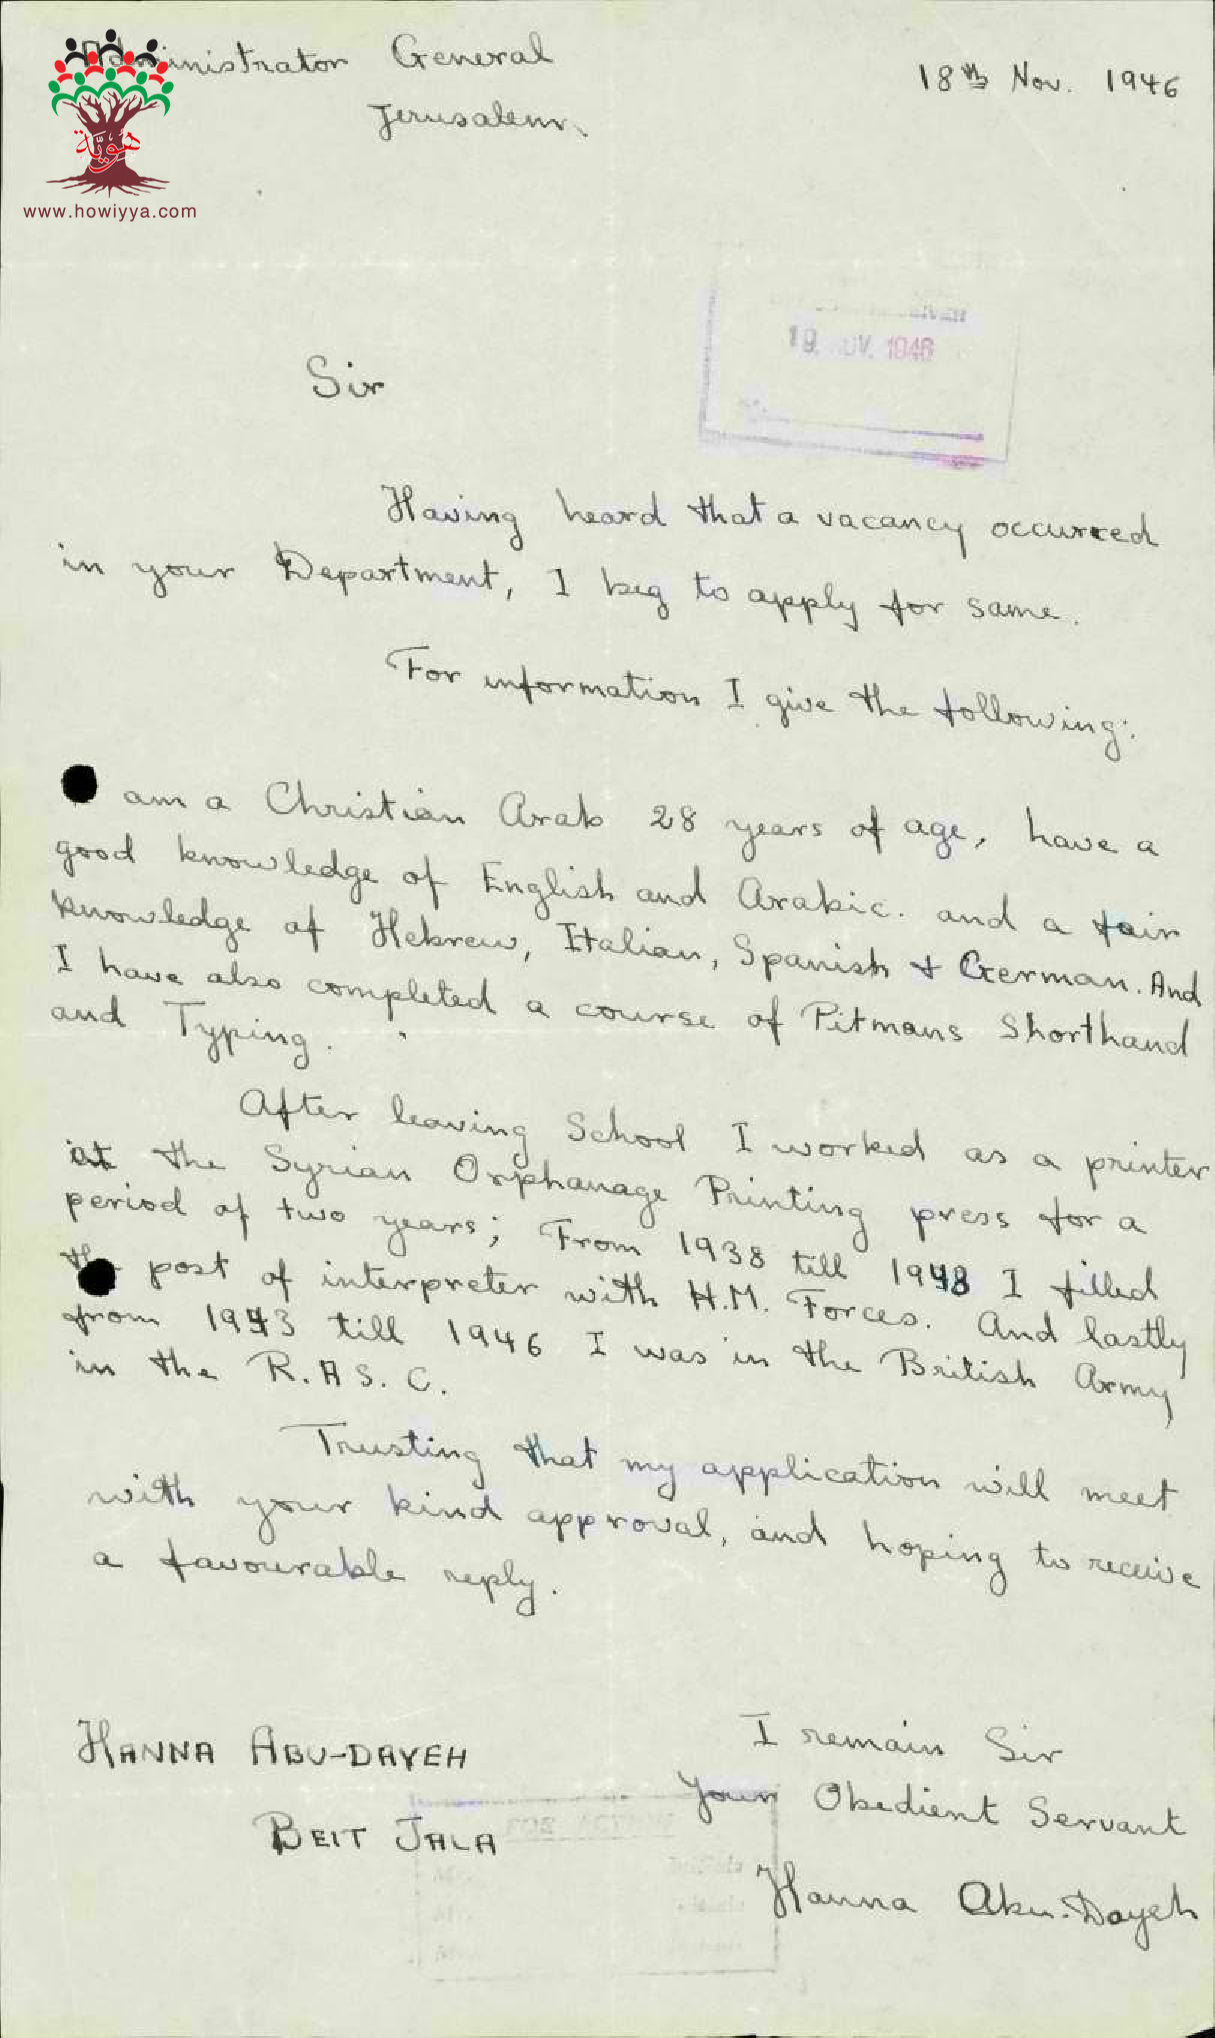 Administrator General
18th Nov. 1946
Jerusalem.
هوية
www.howiyya.com
19 NOV. 1946
Sir
Having heard that a vacancy occurred
in your Department, I beg to apply for same.
For information I give the following:
am a Christian Arab 28 years of age, have a
good knowledge of English and Arabic. and a fair
knowledge of Hebrew, Italian, Spanish & German. And
I have also completed a course of Pitmans Shorthand
and Typing.
After leaving School I worked as a printer
at the Syrian Orphanage Printing press for a
period of two years; From 1938 till 1943 I filled
the post of interpreter with H.M. Forces. And lastly
from 1943 till 1946 I was in the British Army
in the R.A S. C.
Trusting that my application will meet
with your kind approval, and hoping to receive
a favourable reply.
I remain Sir
HANNA ABU-DAYEH
Your Obedient Servant
BEIT JALA
Hanna Abu-Dayeh